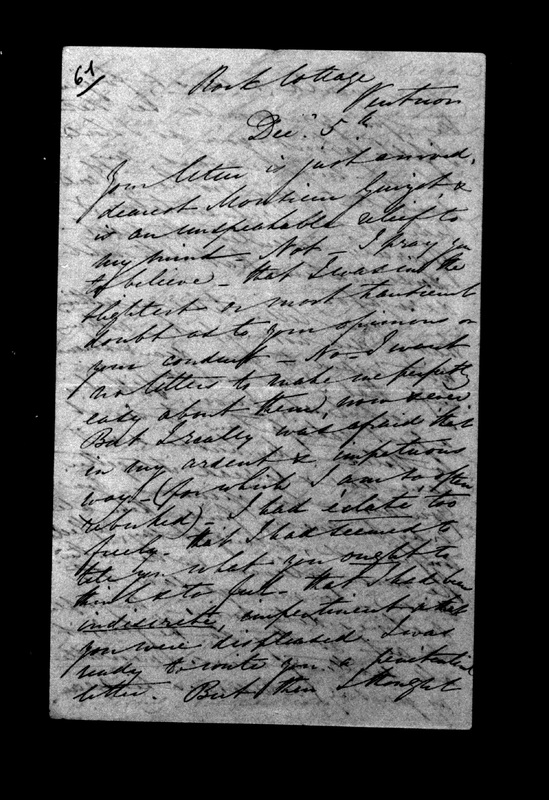 61
Rock Cottage
Ventnor
Dec. 5th
Your letter is just arrived,
dearest Monsieur Guizot, &
is an unspeakable relief to
my mind. Not – I pray you
to believe – that I was in the
slightest or most transient
doubt as to your opinions or
your conduct – No – I want
no letters to make me perfectly
easy about them, now & ever
But I really was afraid that
in my ardent & impetuous
way – (for which I am so often
rebuked) – I had too
freely – that I had seemed to
tell you what you ought to
think & to feel – that I had been
indiscrète, impertinent & that
you were displeased. I was
ready to write you a penitential
letter. But then I thought